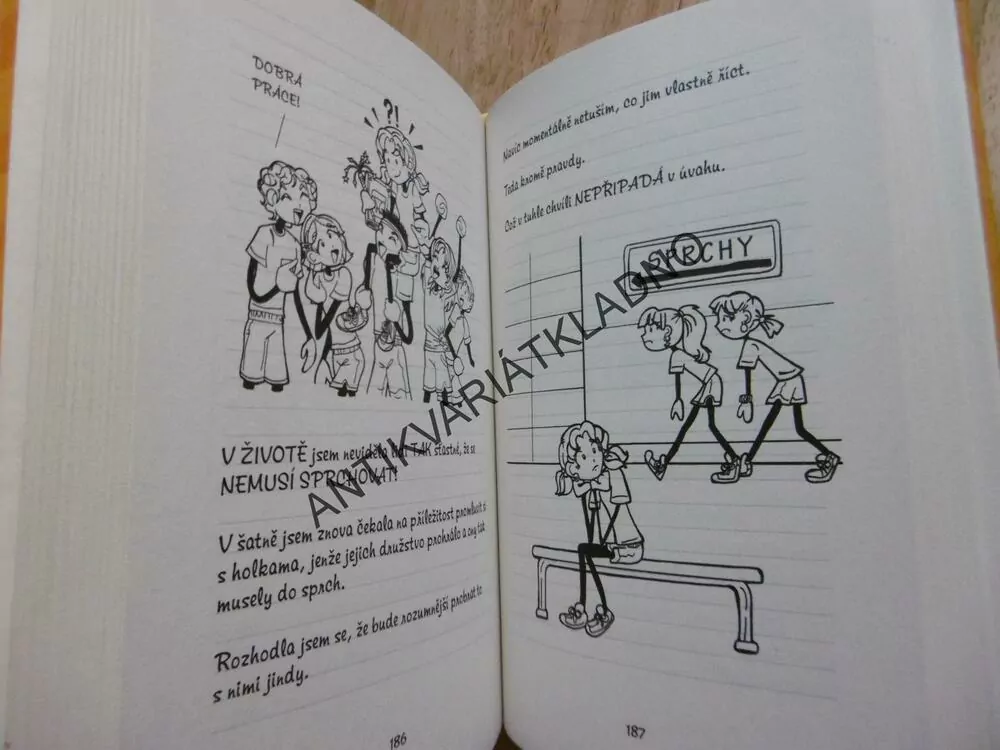 DOBRA
PRÁCE!
?!
V ŽIVOTĚ jsem neviděla lidi TAK šťastné, že se
NEMUSÍ SPRCHOVAT!
V šatně jsem znova čekala na příležitost promluvit si
s holkama, jenže jejich družstvo prohrálo a ony tak
musely do sprch.
Rozhodla jsem se, že bude rozumnější probrat to
s nimi jindy.
186
Navíc momentálně netuším, co jim vlastně říct.
Teda kromě pravdy.
Což v tuhle chvíli NEPŘIPADÁ v úvahu.
SPRCHY
187
ANTIKVARIÁTKLADNO